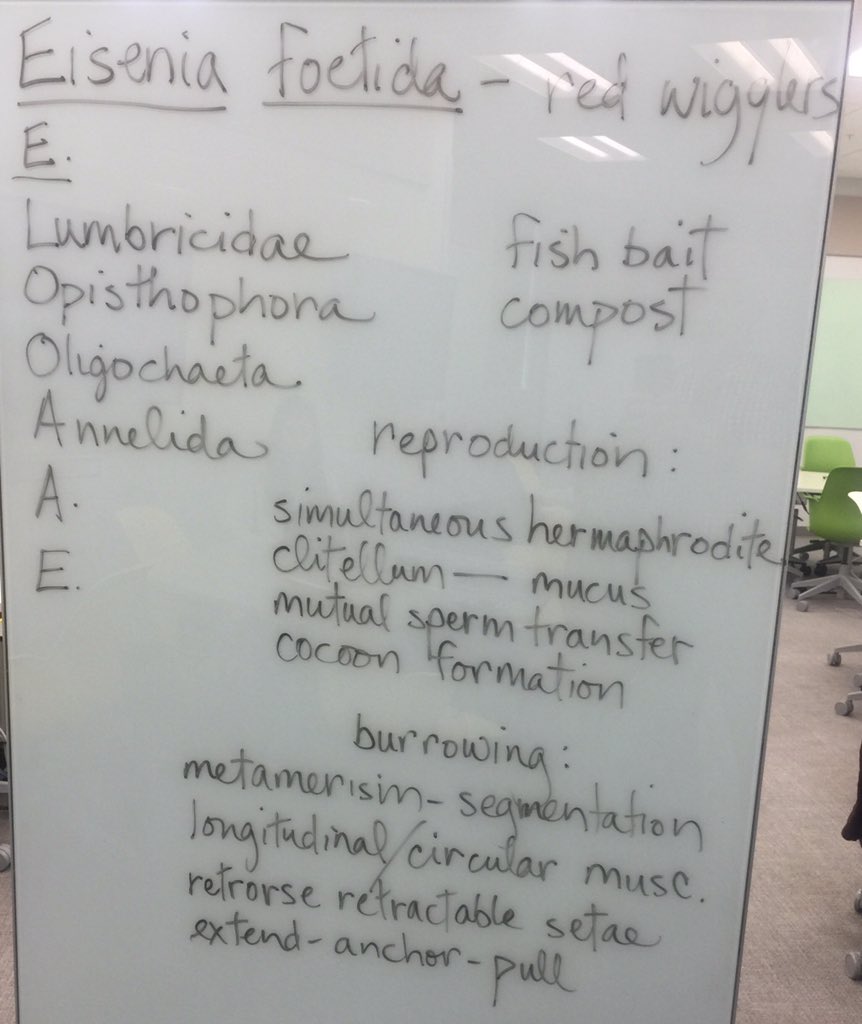 Eisenia foetida - red wigglers
E.
Lumbricidae
Opisthophora
Oligochaeta.
Annelida
A.
E.
fish bait
compost
reproduction:
simultaneous hermaphrodite
clitellum — mucus
mutual sperm transfer
cocoon formation
burrowing:
metamerism - segmentation
longitudinal/circular musc.
retrorse retractable setae
extend-anchor-pull